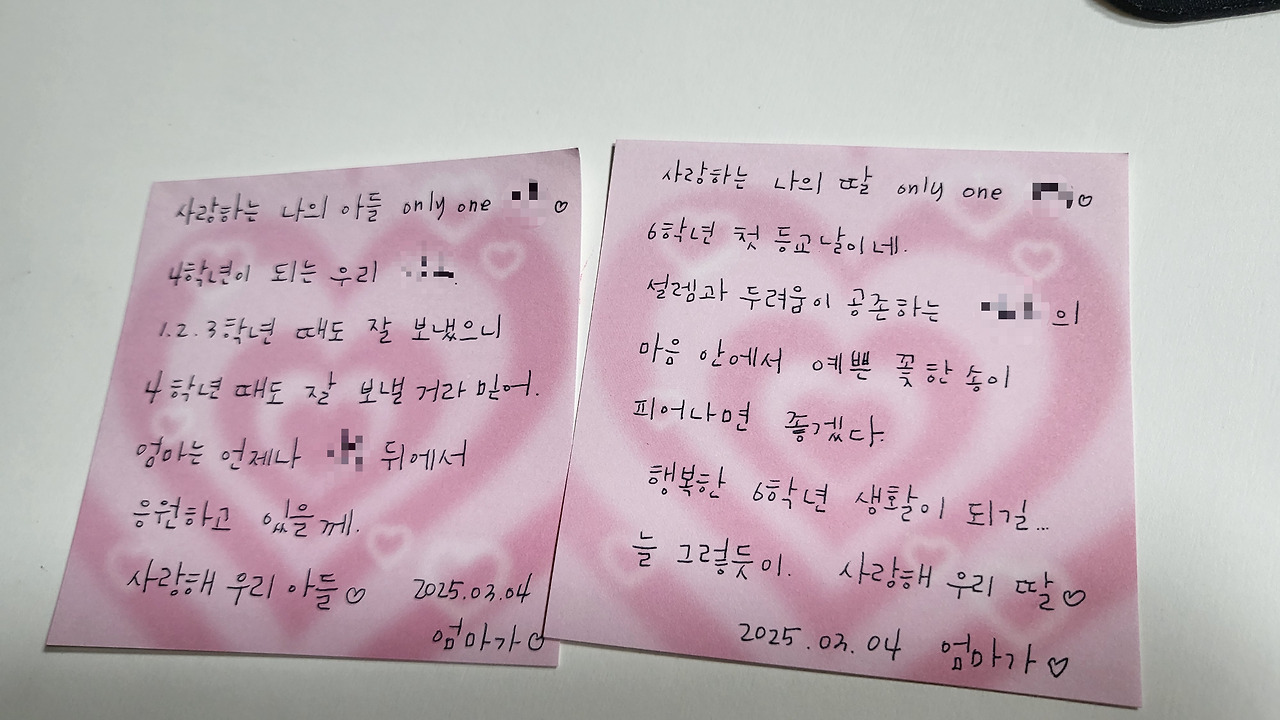 사랑하는 나의 아들 only one ♡
4학년이 되는 우리 .
1.2.3학년 때도 잘 보냈으니
4학년 때도 잘 보낼 거라 믿어.
엄마는 언제나 뒤에서
응원하고 있을께.
사랑해 우리 아들♡ 2025.03.04
엄마가♡
사랑하는 나의 딸 only one ♡
6학년 첫 등교날이네.
설렘과 두려움이 공존하는 의
마음 안에서 예쁜 꽃 한 송이
피어나면 좋겠다.
행복한 6학년 생활이 되길...
늘 그렇듯이. 사랑해 우리 딸♡
2025.03.04 엄마가♡